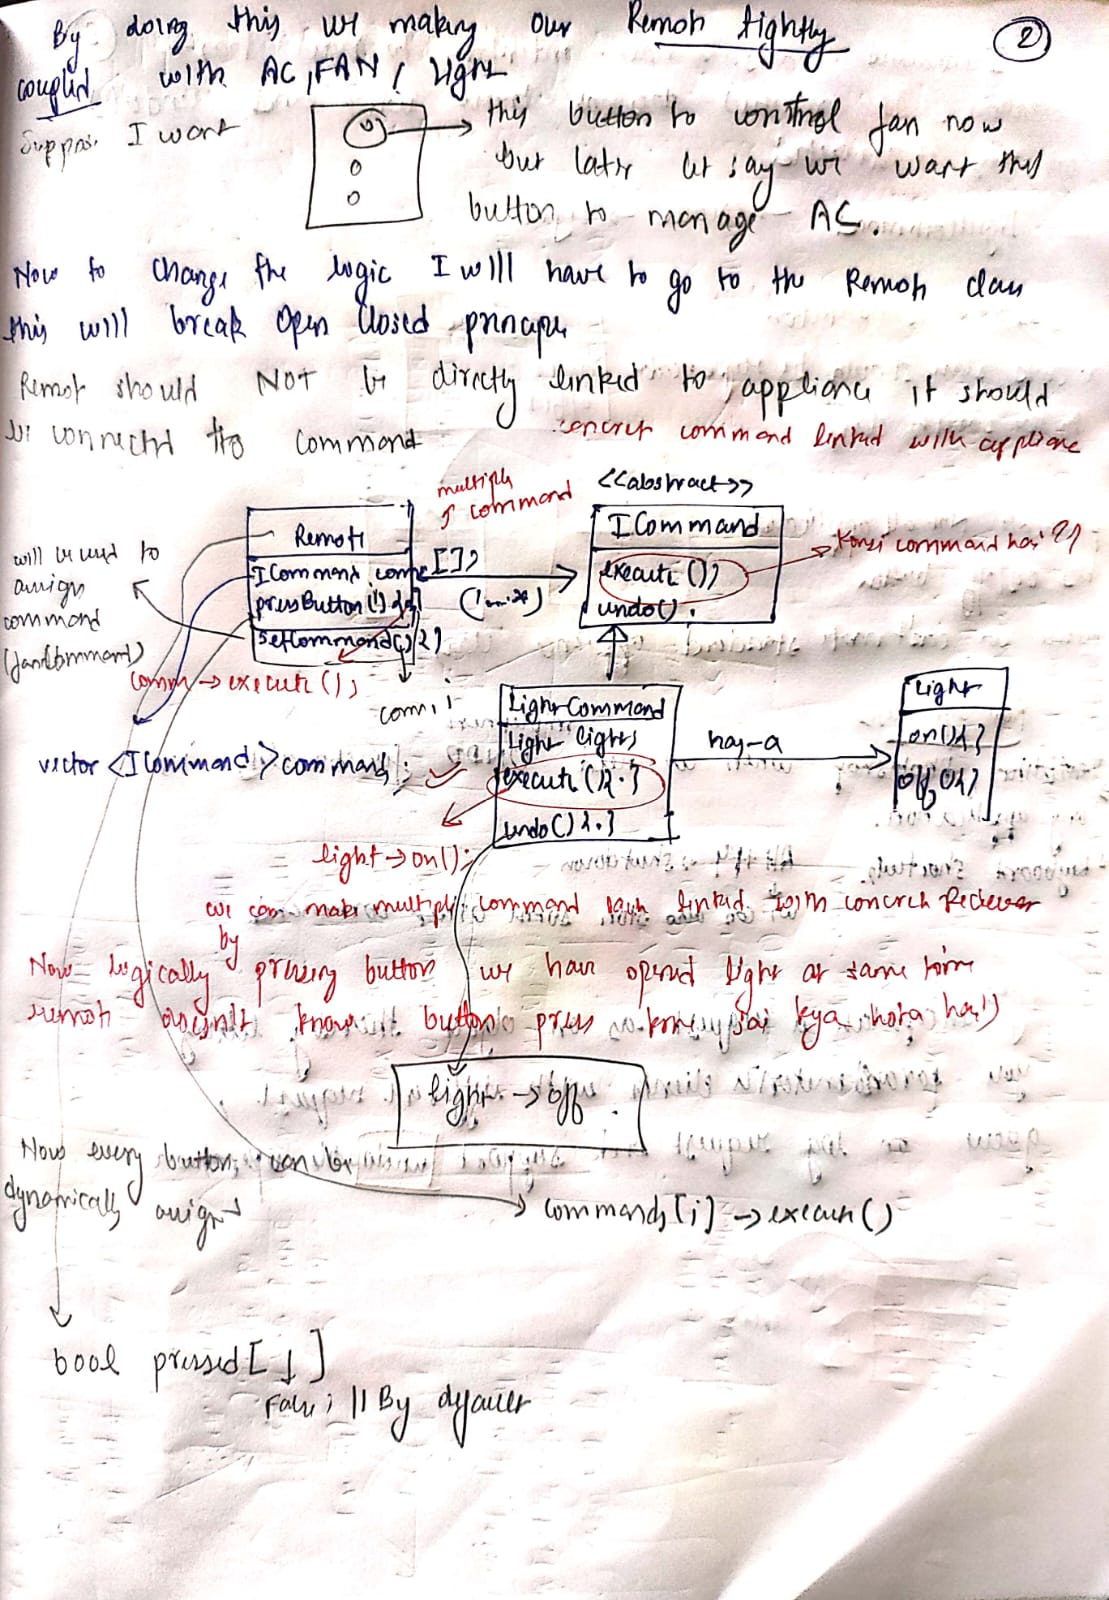 By doing this we making our Remote tightly
coupled with AC, FAN, Light
②
Suppose I want this button to control fan now
but later let say we want this
button to manage AC.
Now to change the logic I will have to go to the Remote class
this will break Open Closed principle
Remote should NOT be directly linked to appliance it should
be connected to command
concrete command linked with appliance
multiple
command
<<abstract>>
Remote
ICommand comm [];
pressButton(i) { }
setCommand() { }
(1 ... *)
ICommand
execute();
undo();
Konsi command hai ?
will be used to
assign
command
(fanCommand)
comm → execute();
com, i
vector <ICommand> commands;
LightCommand
Light lights
execute() { . }
undo() { . }
has-a
Light
on() { }
off() { }
light → on();
we can make multiple command each linked with concrete Reciever
Now logically by pressing button we have opened light at same time
remote doesn't know button press krne sai kya hota hai)
light → off .
Now every button can be
dynamically assigned
commands[i] → execute()
bool pressed[ ]
False; || By default